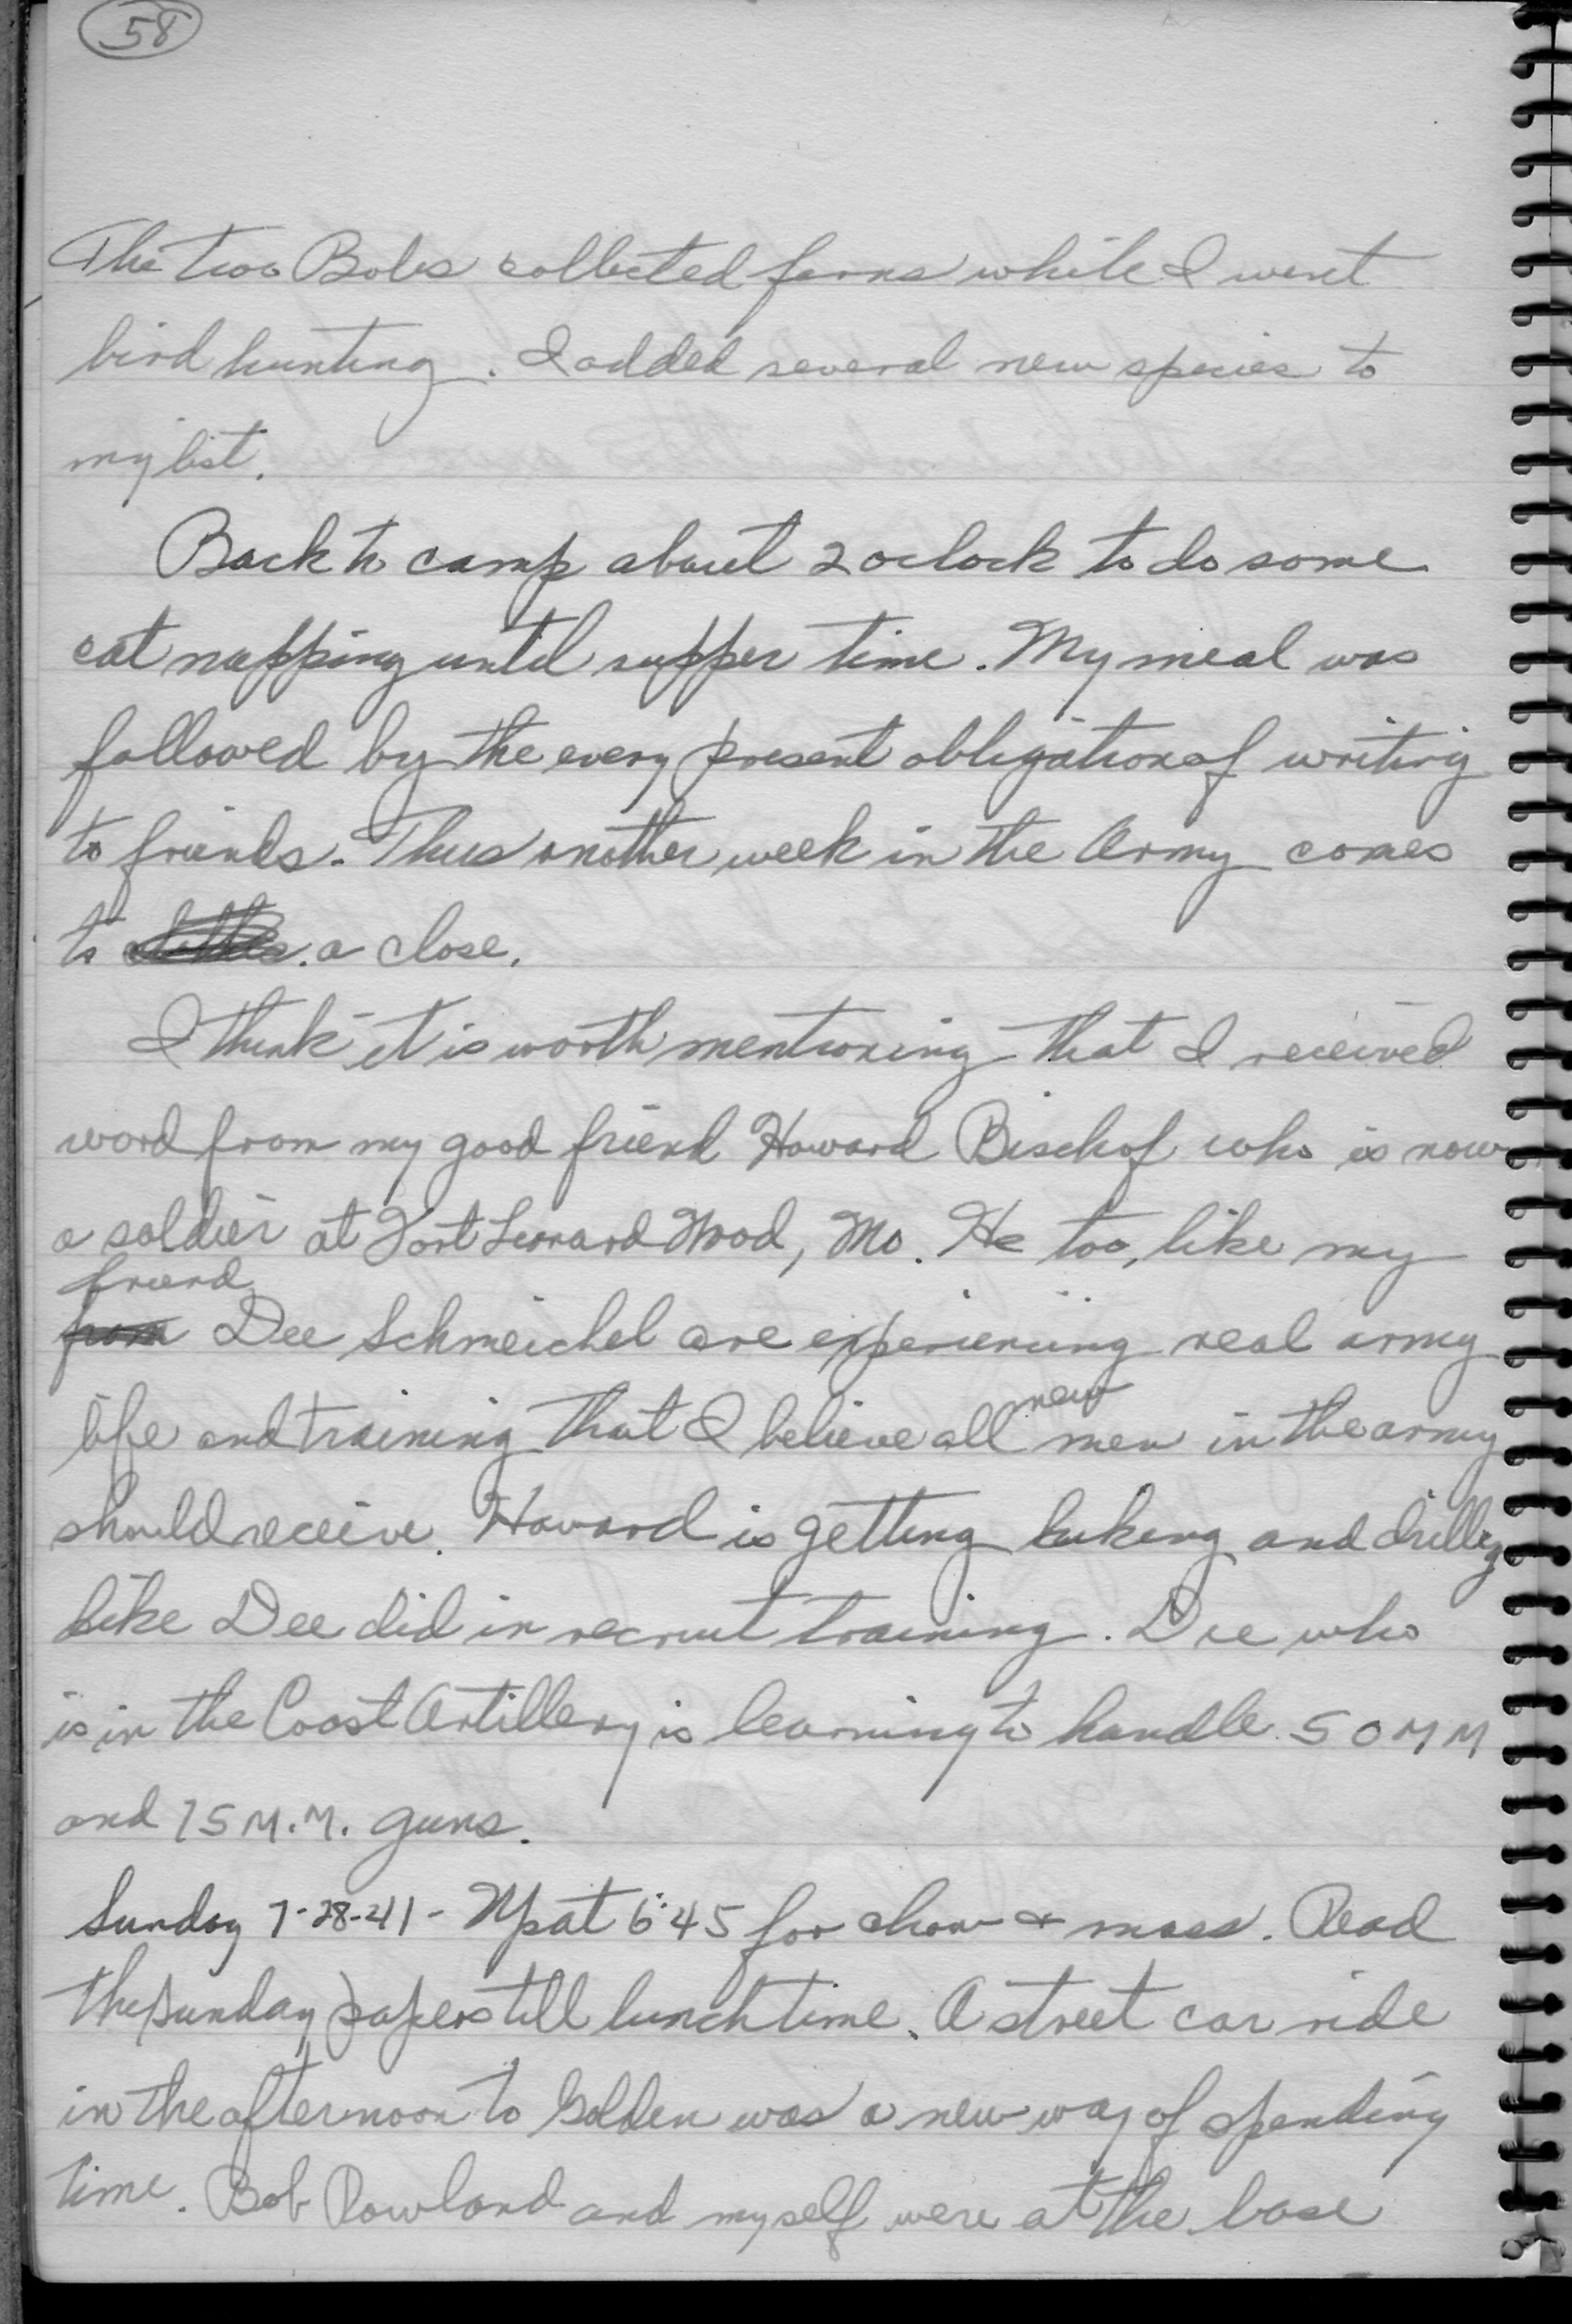 58
The two Bobs collected ferns while I went
bird hunting. I added several new species to
my list.
Back to camp about 2 oclock to do some
cat napping until supper time. My meal was
followed by the every present obligation of writing
to friends. Thus another week in the Army comes
to a close.
I think it is worth mentioning that I received
word from my good friend Howard Bischof who is now
a soldier at Fort Leonard Wood, Mo. He too, like my
friend
from Dee Schmeichel are experiencing real army
new
life and training that I believe all men in the army
should receive. Howard is getting hiking and drilling
like Dee did in recruit training. Dee who
is in the Coast Artillery is learning to handle 50 MM
and 75 M.M. guns.
Sunday 7-28-41 - Up at 6:45 for chow & mass. Read
the Sunday papers till lunch time. A street car ride
in the afternoon to Golden was a new way of spending
time. Bob Rowland and myself were at the base